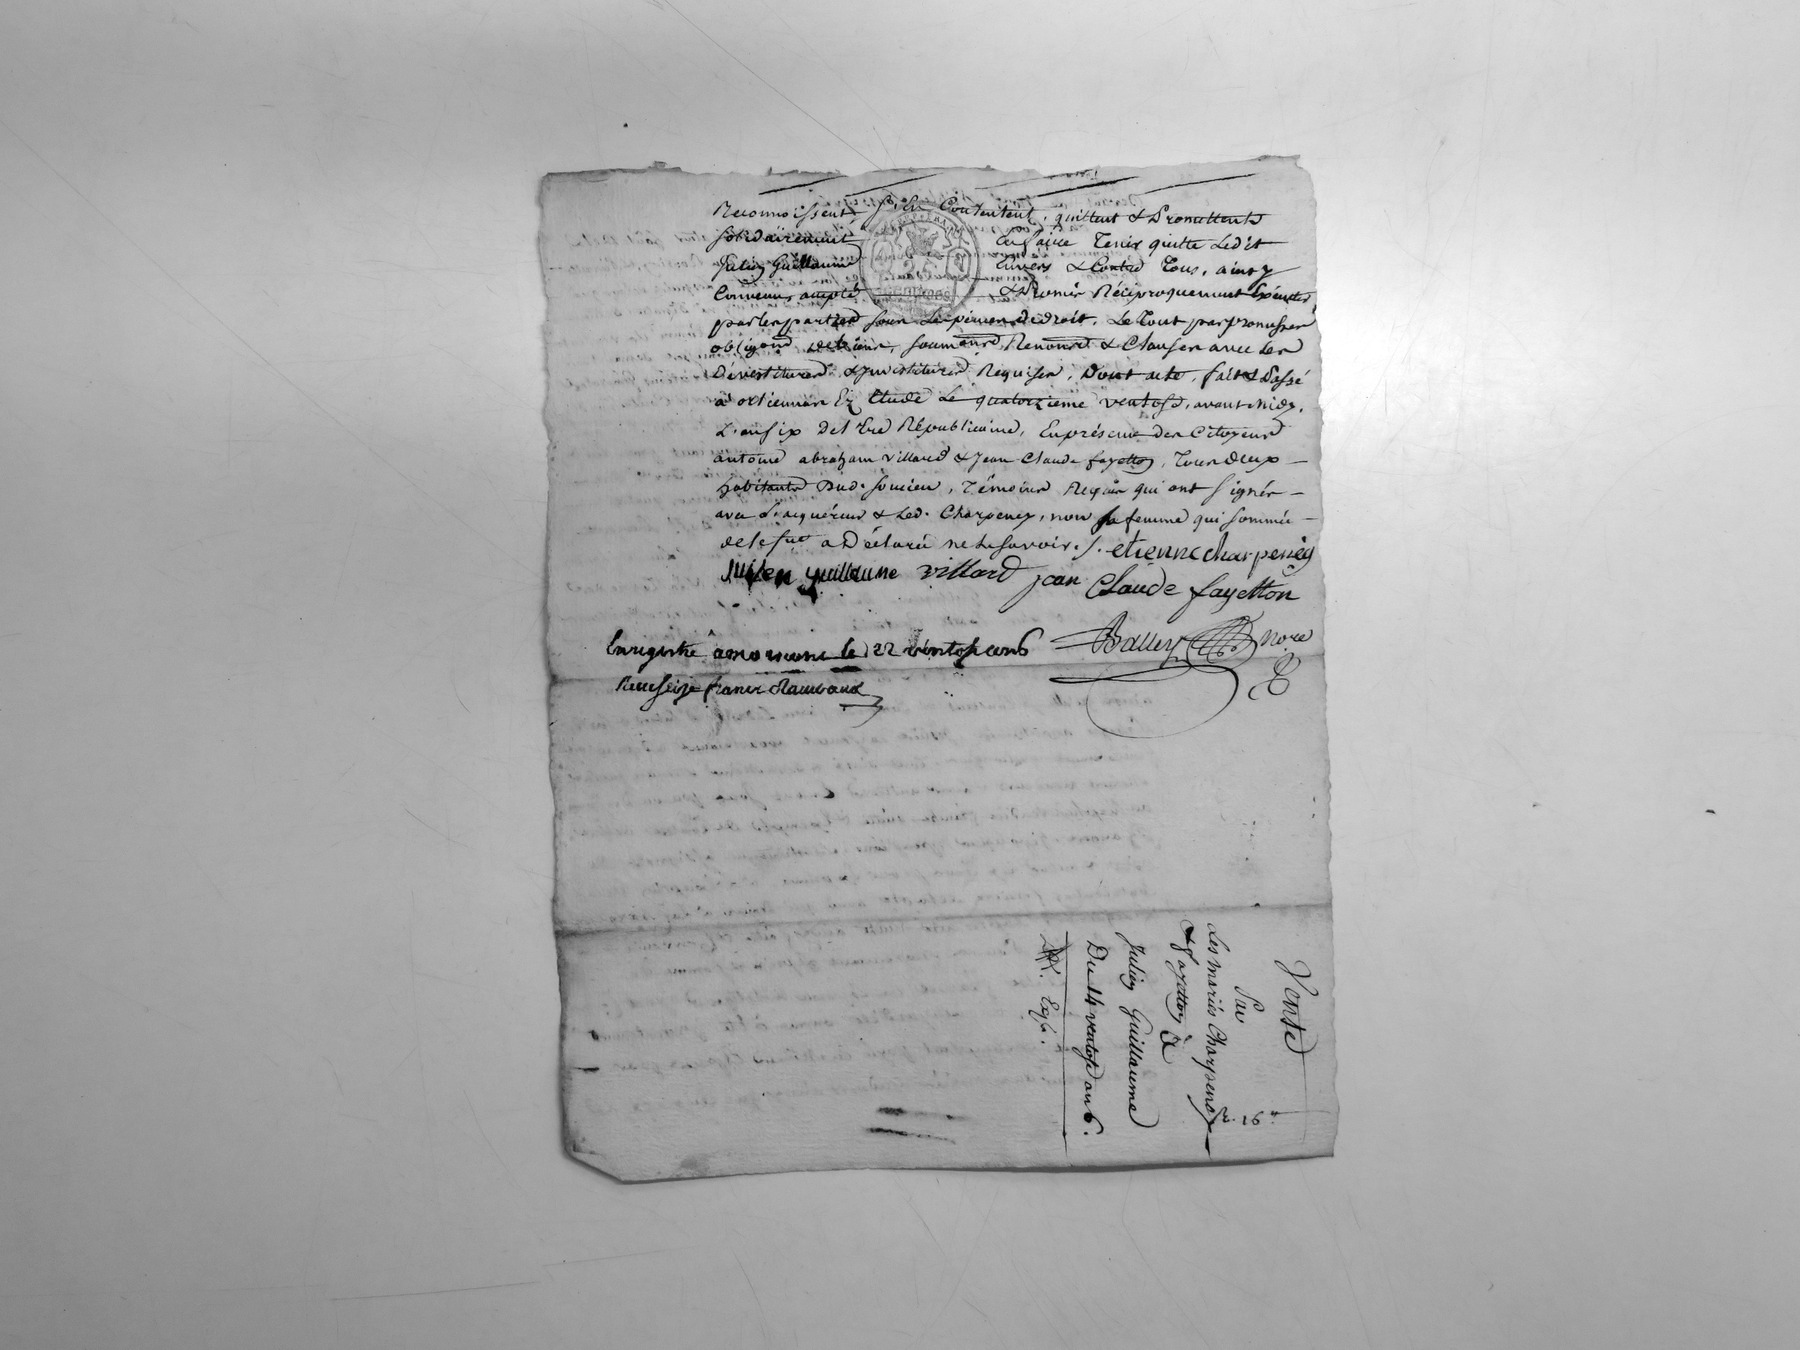 Reconnoissent, s'en Contentent, quittent & Promettent
solidairement en faire Tenir quitte Ledit
Julien Guillaume Envers & Contre Tous, ainsy
Convenu, accepté & Promis Réciproquement Exécuter
par les parties sous les peines de droit. Le Tout par promesses
obligaõns de biens, soumõns, Renonõns & Clauses avec les
Dévestitures & Investitures Requises. Dont acte, fait & Passé
à ornacieux En Etude Le quatorzieme ventose, avant Midy,
L'an six De l'Ere Républicaine, En présence des Citoyens
antoine abraham Villard & Jean Claude fayetton, Tous deux
habitants Dud. Témoins Requis qui ont signés
avec L'acquéreur & Led. Charpenay, non sa femme qui sommée
de le fre a Déclaré ne le savoir. etienne charpenay
Julien guillaume Villard jean Claude fayetton
Enregistré à le 22 ventose an 6 Balley Nore
Reçu seize francs
Vente
Par
Les mariés Charpenay
& Fayetton à
Julien Guillaume
Du 14 ventose an 6.
Exp.
16